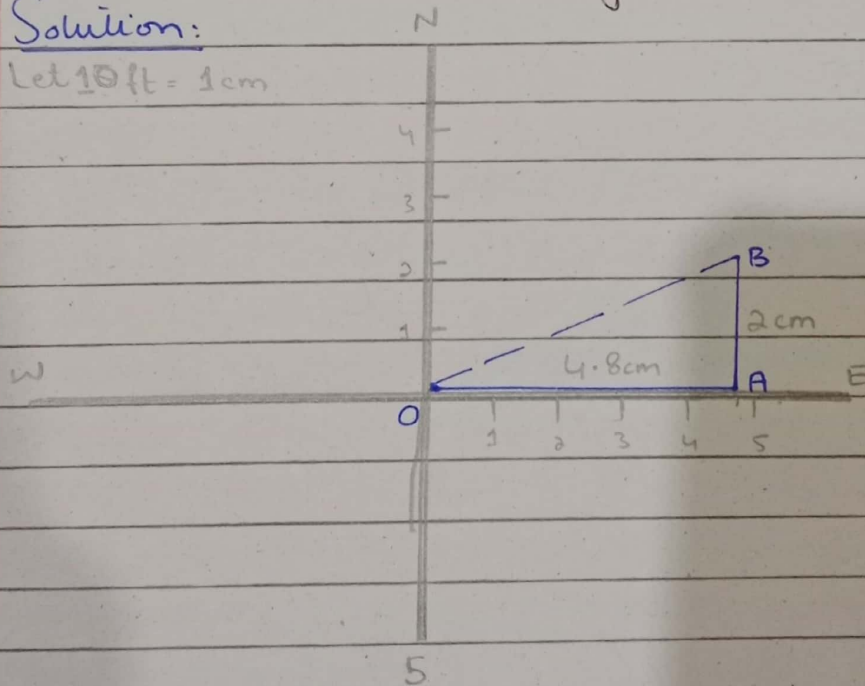 Solution:
N
Let 10ft = 1cm
4
3
2
B
1
2cm
4.8cm
W
A
E
O
1 2 3 4 5
S